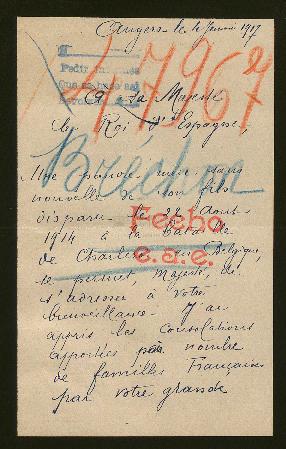 Angers le 4 Janvier 1917
Pedir
Que se
47967
A sa Majesté
le Roi d'Espagne,
Bréchoe
Une pauvre mère sans
nouvelle de son fils
disparu le 22 Aout
1914 à la Bataille
de Charleroi Belgique,
Fecho
c.a.e.
se permet, Majesté, de
s'adresser à votre
bienveillance. J'ai
appris les consolations
apportées par nombre
de familles Françaises
par votre grande